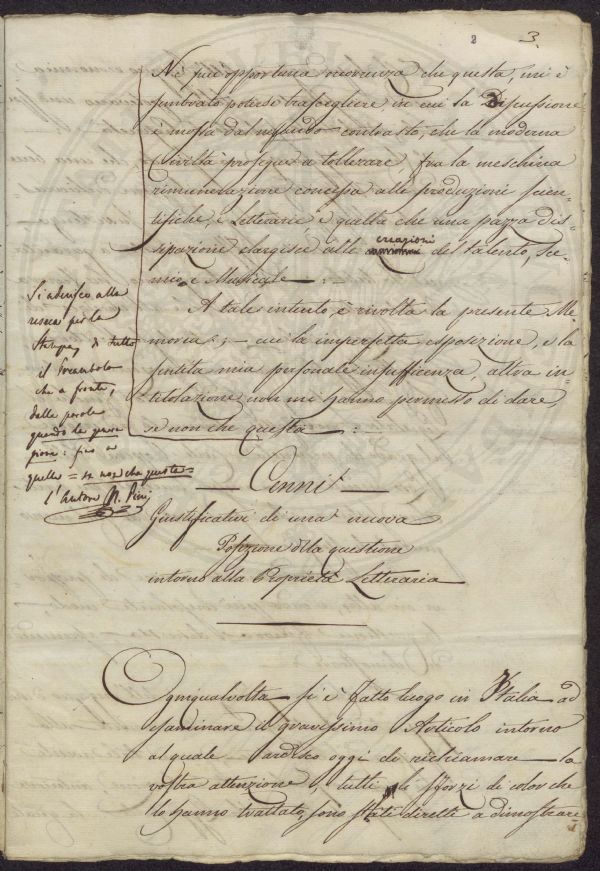 3.
Nè più opportuna ricorrenza che questa, mi è
sembrato potersi trascegliere in cui la Discussione
è mossa dal nefando contrasto, che la moderna
Civiltà prosegue a tollerare, fra la meschina
rimunerazione concessa alle produzioni scien-
tifiche, e Letterarie e quella che una pazza dis-
sipazione elargisce alle creazioni del talento, Sce-
nico, e Musicale :
A tale intento, è rivolta la presente Me-
moria ; cui la imperfetta esposizione, e la
sentita mia personale insufficenza, altra in-
titolazione non mi hanno permesso di dare,
se non che questa :
Si aderisce alla
resca per la
Stampa, di tutto
il Preambolo
che a fronte,
dalle parole
quando la
: fino a
quelle = se non che questa =
l'Autore
Cenni
Giustificativi di una nuova
Posizione della questione
intorno alla Proprietà Letteraria
Ogniqualvolta si è fatto luogo in Italia ad
esaminare il gravissimo Articolo intorno
al quale ardisco oggi di richiamare la
vostra attenzione, tutti gli sforzi di color che
lo hanno trattato, sono stati diretti a dimostrare